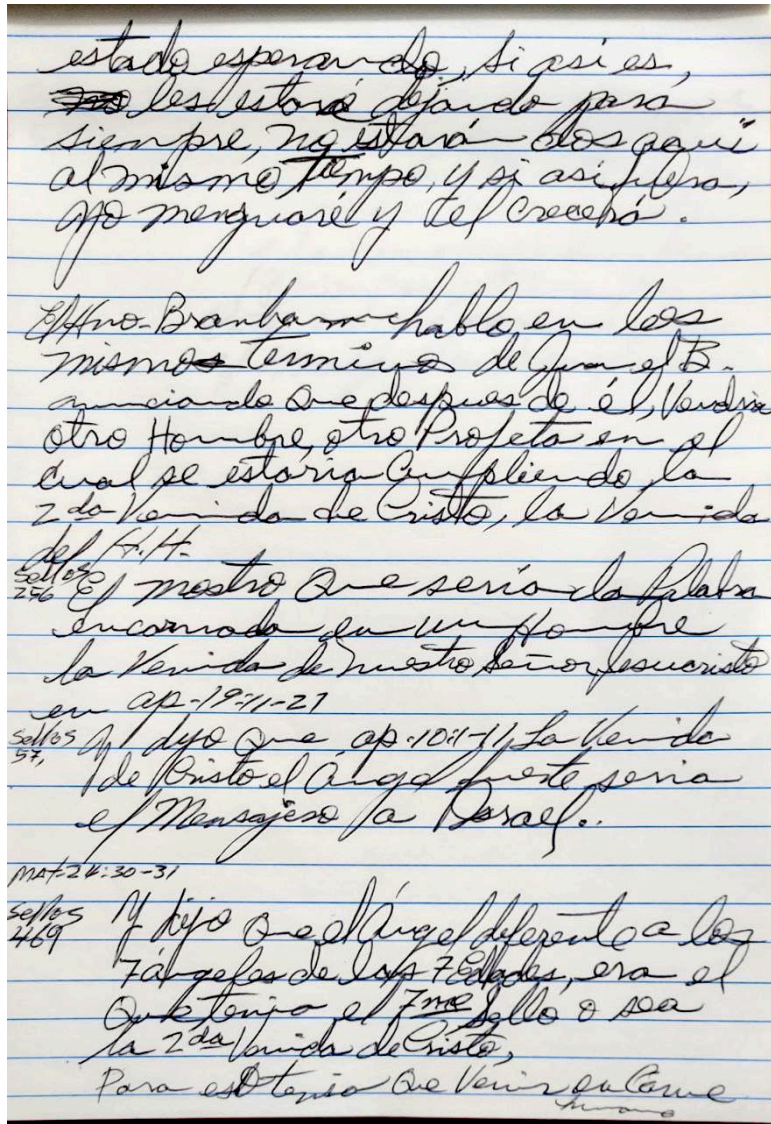 estado esperando, si asi es,
les estaré dejando para
siempre, no estarán dos aquí
al mismo tiempo, y si asi fuera,
yo menguaré y él crecerá.
El Hno. Branham hablo en los
mismos terminos de Juan el B.
anunciando que despues de él, Vendria
otro Hombre, otro Profeta en el
cual se estaria Cumpliendo, la
2da Venida de Cristo, la Venida
del H.H.
Sellos 256 El mostro Que seria la Palabra
encarnada en un Hombre
la Venida de nuestro Señor Jesucristo
en ap-19:11-21
Sellos 57, Y dijo que ap.10:1-11, La Venida
de Cristo el Ángel fuerte seria
el Mensajero a Israel..
MAT-24:30-31
Sellos 469 Y dijo Que el Ángel diferente a los
7 ángeles de las 7 Edades, era el
Que tenia el 7mo Sello o sea
la 2da Venida de Cristo,
Para esto tenia Que Venir en Carne
humana